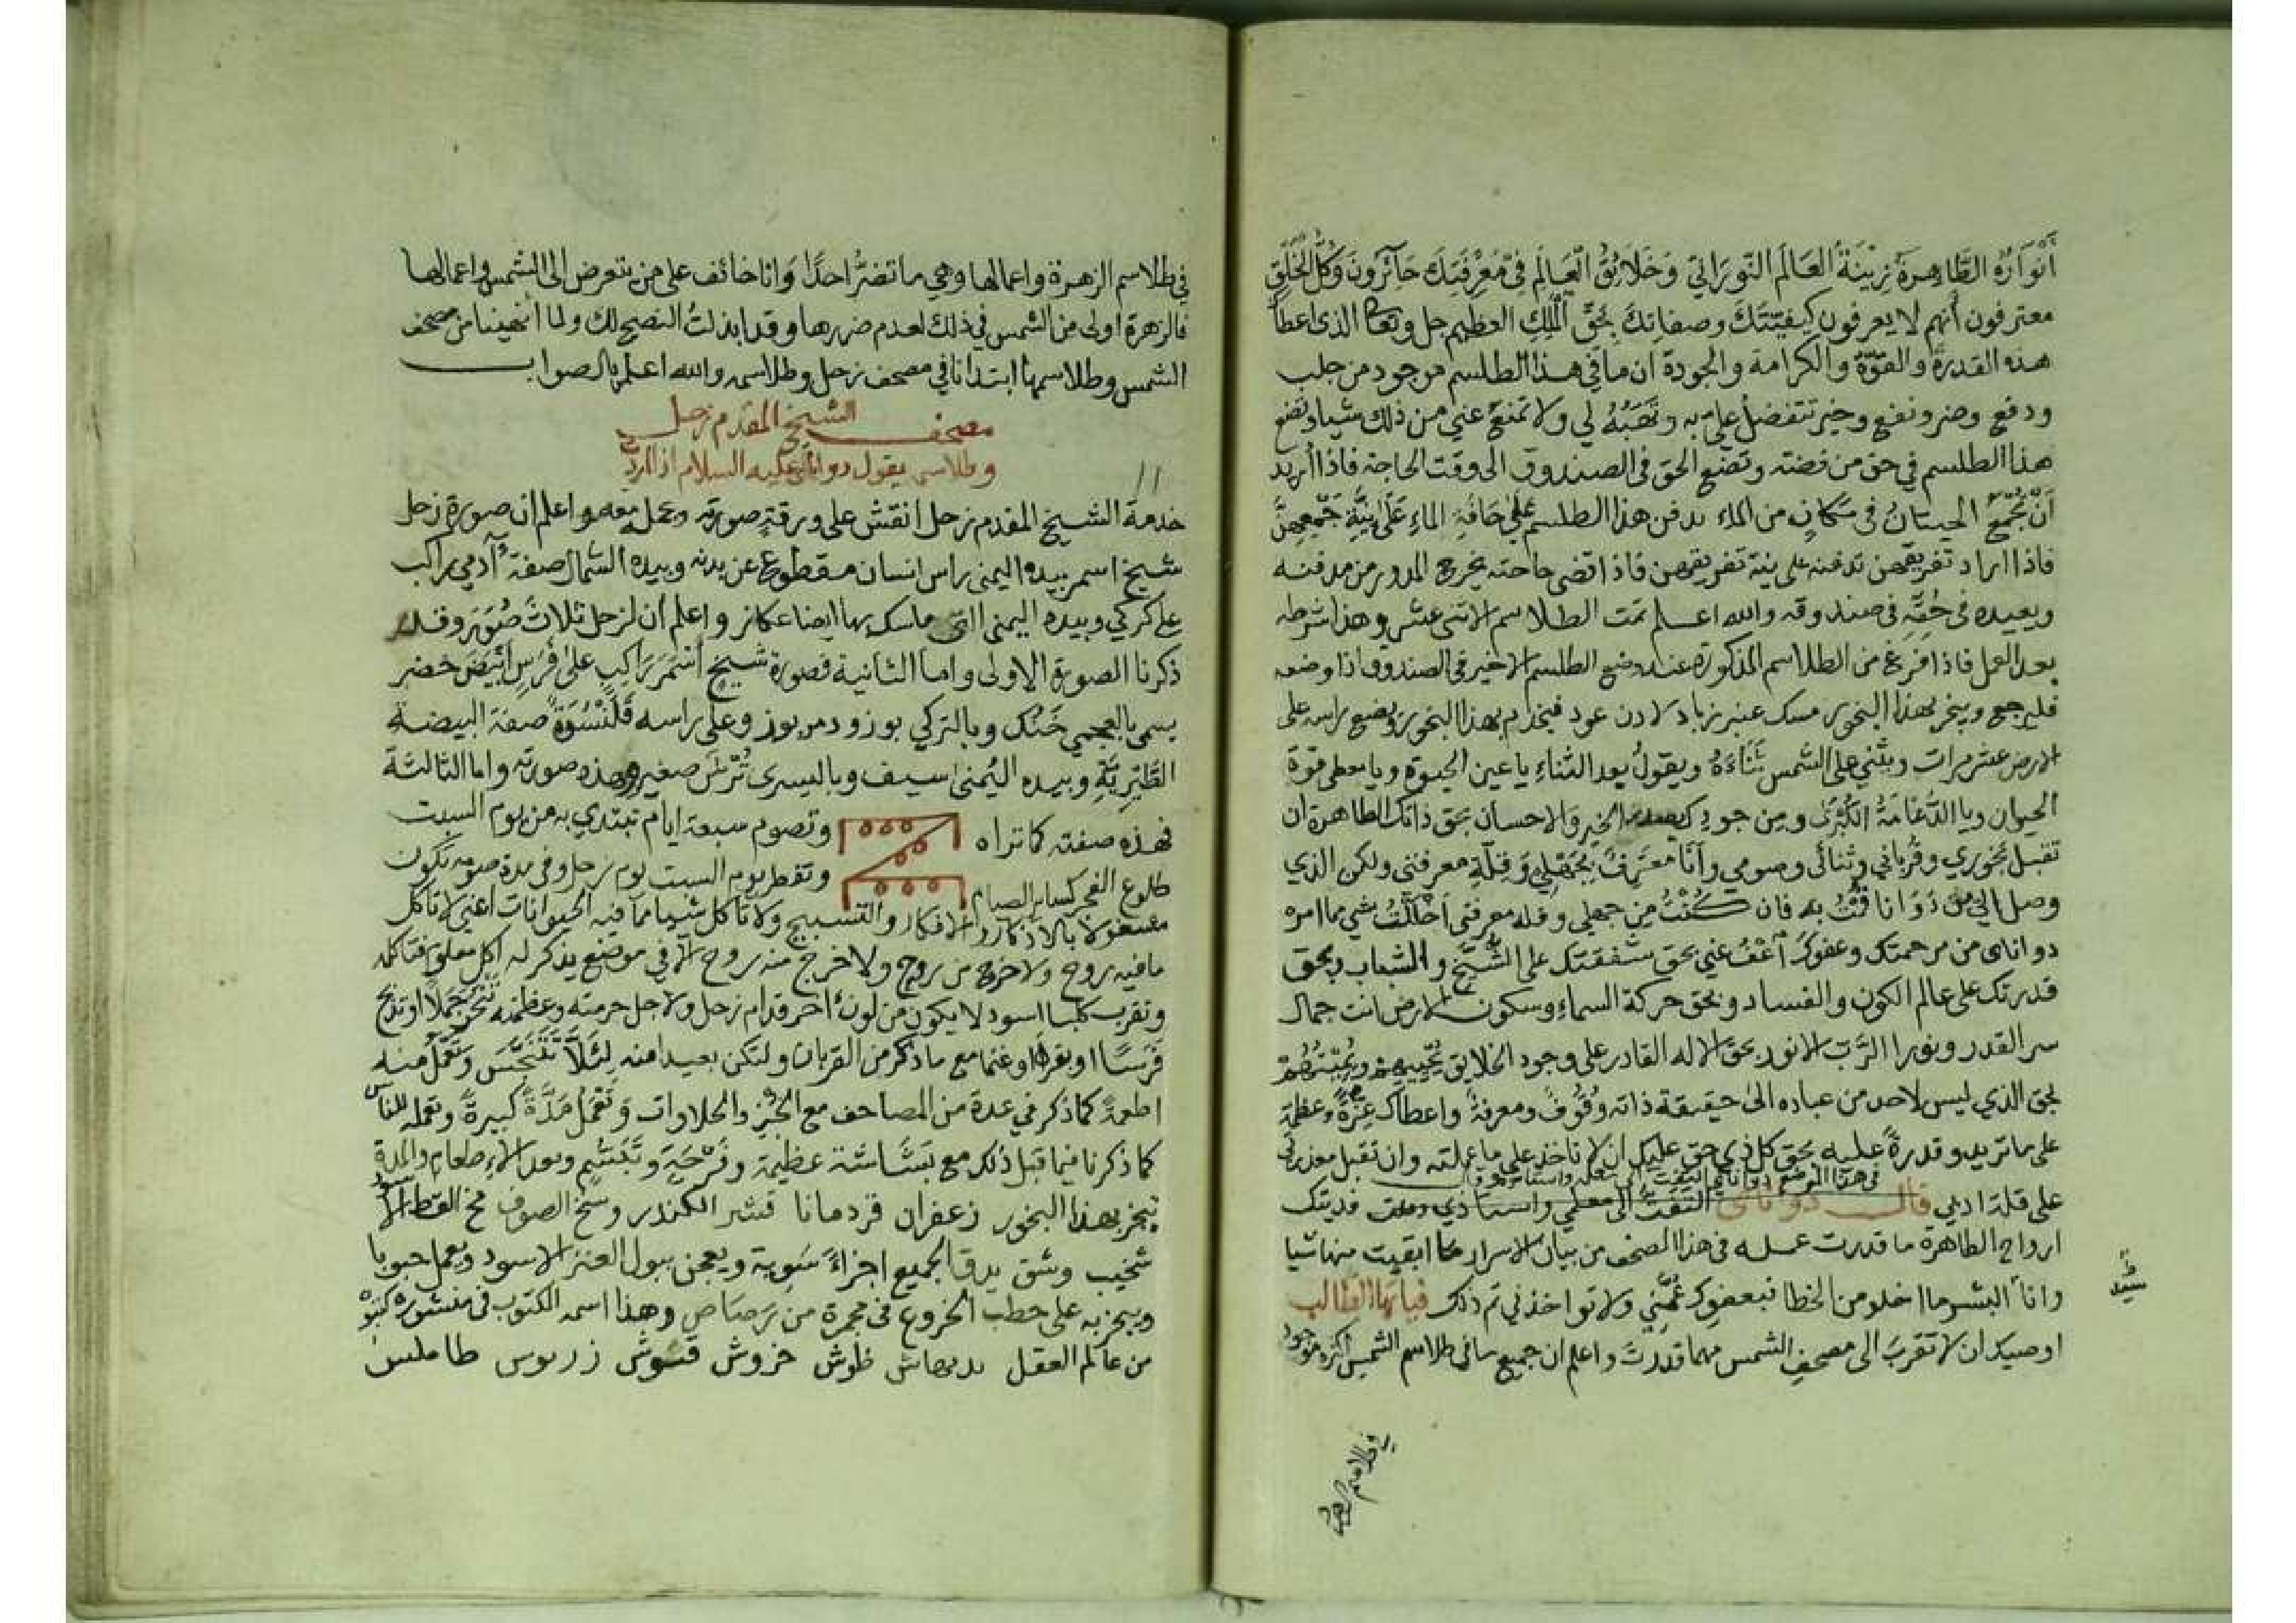 أَنْوَارُهُ الطَّاهِرَة زِينَةُ العَالَم النّورَانِي وَخَلَايِقُ العَالَمِ فِي مَعْرِفَتِكَ حَآئِرُونَ وَكُلُّ الخَلْقِ
معترفون أنهم لا يعرفون كيفيّتَكَ وصفاتِكَ بحَقّ المَلِكِ العظيم جل وتعالى الذي اعطاك
هذه القدرة والقوّة والكرامة والجودة ان ما في هذا الطلسم موجود من جلب
ودفع وضر ونفع وخير تتفضل علىّ به وتَهَبَهُ لي ولا تمنعْ عني من ذلك شيا وتضع
هذا الطلسم في حق من فضته وتضع الحق في الصندوق الى وقت الحاجته فاذا أريد
اَنْ تُجْمَعَ الحيتانُ في مَكَانٍ من الماء يدفن هذا الطلسم علىٰ حَافَةِ الماءِ عَلىٰ نِيَّةِ جَمْعِهِنَّ
فاذا اراد تفريقهن تدفنه على نية تفريقهن فاذا قضى حاجته يخرج المدور من مدفنه
ويعيده في حُقّهِ في صندوقه والله اعلم تمت الطلاسم الاثنى عشر وهذا شرطه
بعد العمل فاذا فرغ من الطلاسم المذكورة عند وضع الطلسم الاخير في الصندوق اذا وضعه
فليرجع ويبخر بهذا البخور مسك عنبر زباد لادن عود فيخدم بهذا البخور ويضع راسه على
الارض عشر مرات ويثني على الشمس ثَنَاءَهُ ويقولُ بعد الثناء يا عين الحيوة ويا معطى قوة
الحيوان ويا الدَّعَامَةُ الكُبْرَى ومِن جودِك الخير والاحسان بحق ذاتك الطاهرة ان
تقبل بخوري وقُرباني وثنائى وصومي وأنَا مُعتَرِفٌ بِجَهْلِي وَقِلَّةِ معرفتي ولكن الذي
وصل اليّ من دَوَانا قُمْتُ به فان كُنْتُ مِن جهلي وقله معرفتي اَخْلَلْتُ بشي مما امره
دواناى من مرحمتك وعفوكَ اَعْفُ عني بحق شفقتك على الشَّيخ والشباب وبحق
قدرتك على عالم الكون والفساد وبحق حركة السماء وسكون الارض انت جمال
سر القدر ونور الرَّبّ الانور بحق الاله القادر على وجود الخلايق تُحْيِيهِمْ ويُمِيتُهُمْ
بحق الذي ليس لاحد من عباده الىٰ حقيقة ذاته وُقُوفٌ ومعرفةٌ واعطاك عِزَّةً وعظمة
على ما تريد وقدرةً عليه بحق كل ذي حق عليك ان لا تاخذ علي ما عملته وان تقبل معذرتى
في هذا الموضع دواناى التفت الى معلمه واستاذه وقال
على قلة ادبي قالـــ دواناى التفتُ الى معلمي واستاذي وقلت فديتك
ارواح الطاهرة ما قدرت عمله في هذا الصحف من بيان الاسرار ما ابقيت منها شيا
وانا البشر ما اخلو من الخطا فبعفوك عُمَّنِي ولا تواخذني تم ذلك فيا ايها الطالب
اوصيك ان لا تقرب الى مصحف الشمس مهما قدرت واعلم ان جميع ما في طلاسم الشمس اكثره موجود
في طلاسم الزهرة
في طلاسم الزهرة واعمالها وهي ما تضرُّ احدًا وانا خائف على من يتعرض الى الشمس واعمالها
فالزهرة اولى من الشمس في ذلك لعدم ضررها وقد ابذلتُ النصح لك ولما انتهينا من مصحف
الشمس وطلاسمها ابتدانا في مصحف زحل وطلاسمه والله اعلم بالصواب
مصحف الشيخ المقدم زحل
وطلاسمه يقول دواناى عليه السلام اذا اردت
خدمة الشيخ المقدم زحل انقش على ورقةٍ صورته وتحمله معه واعلم ان صورة زحل
شيخ اسمر بيده اليمنى راس انسان مقطوع عن بدنه وبيده الشمال صفةُ آدمي راكب
على كركي وبيده اليمنى التى ماسك بها ايضا عكاز واعلم ان لزحل ثلاثَ صُوَرٍ وقد
ذكرنا الصورة الاولى واما الثانية فصورة شيخٍ أسْمَرَ رَاكِبٍ علىٰ فَرَسٍ ابْيَضَ خضر
يسمى بالعجمي خَنْك وبالتركي بوز ودمر بوز وعلى راسه قَلَنْسُوَةٌ صفَة البيضة
الطَّبَرِيَّةِ وبيده اليُمنىٰ سيف وباليسرى تُرْسٌ صغير وهذه صورته واما الثالثة
فهذه صفته كما تراه وتصوم سبعة ايام تبتدي به من يوم السبت
طلوع الفجر كساير الصيام وتفطر يوم السبت يوم زحل وفي مدة صومه تكون
مشغولا بالاذكار والافكار والتسبيح ولا تاكل شيا مما فيه الحيوانات اعني لا تاكل
ما فيه روح ولا خرج من روح ولا خرج منه روح الا في موضع يذكر له اكل معلوم فتاكله
وتقرب كلبا اسود لا يكون من لونٍ اخر قدام زحل ولاجل حرمته وعظمته تَنْحَر جَمَلًا او تذبح
فَرَسًا او بقرا او غنما مع ما ذكر من القربان ولتكن بعيدا منه لِئَلَّا تَتَنَجَّسَ وتعمل منه
اطعمةً كما ذكر في عدة من المصاحف مع الخُبْز والحلاوات وَتَعْمَلُ مَدَّةً كبيرةً وتعمله للناس
كما ذكرنا فيما قبل ذلك مع بَشَاشَة عظيمة وفَرْحَةٍ وتَبَسُّمٍ وبعد الاطعام والمدة
تبخر بهذا البخور زعفران قردمانا قشر الكندر وسخ الصوف مخ القط الاسود
شخيب وشق يدق الجميع اجزاءً سَوية ويعجن ببول العنز الاسود ويعمل حبوبا
ويبخر به على حطب الخروع في مجمرة من رَصَاص وهذا اسمه المكتوب في منشوره
من عالم العقل بديهاش طوش خروش قيوش زريوس طامليس